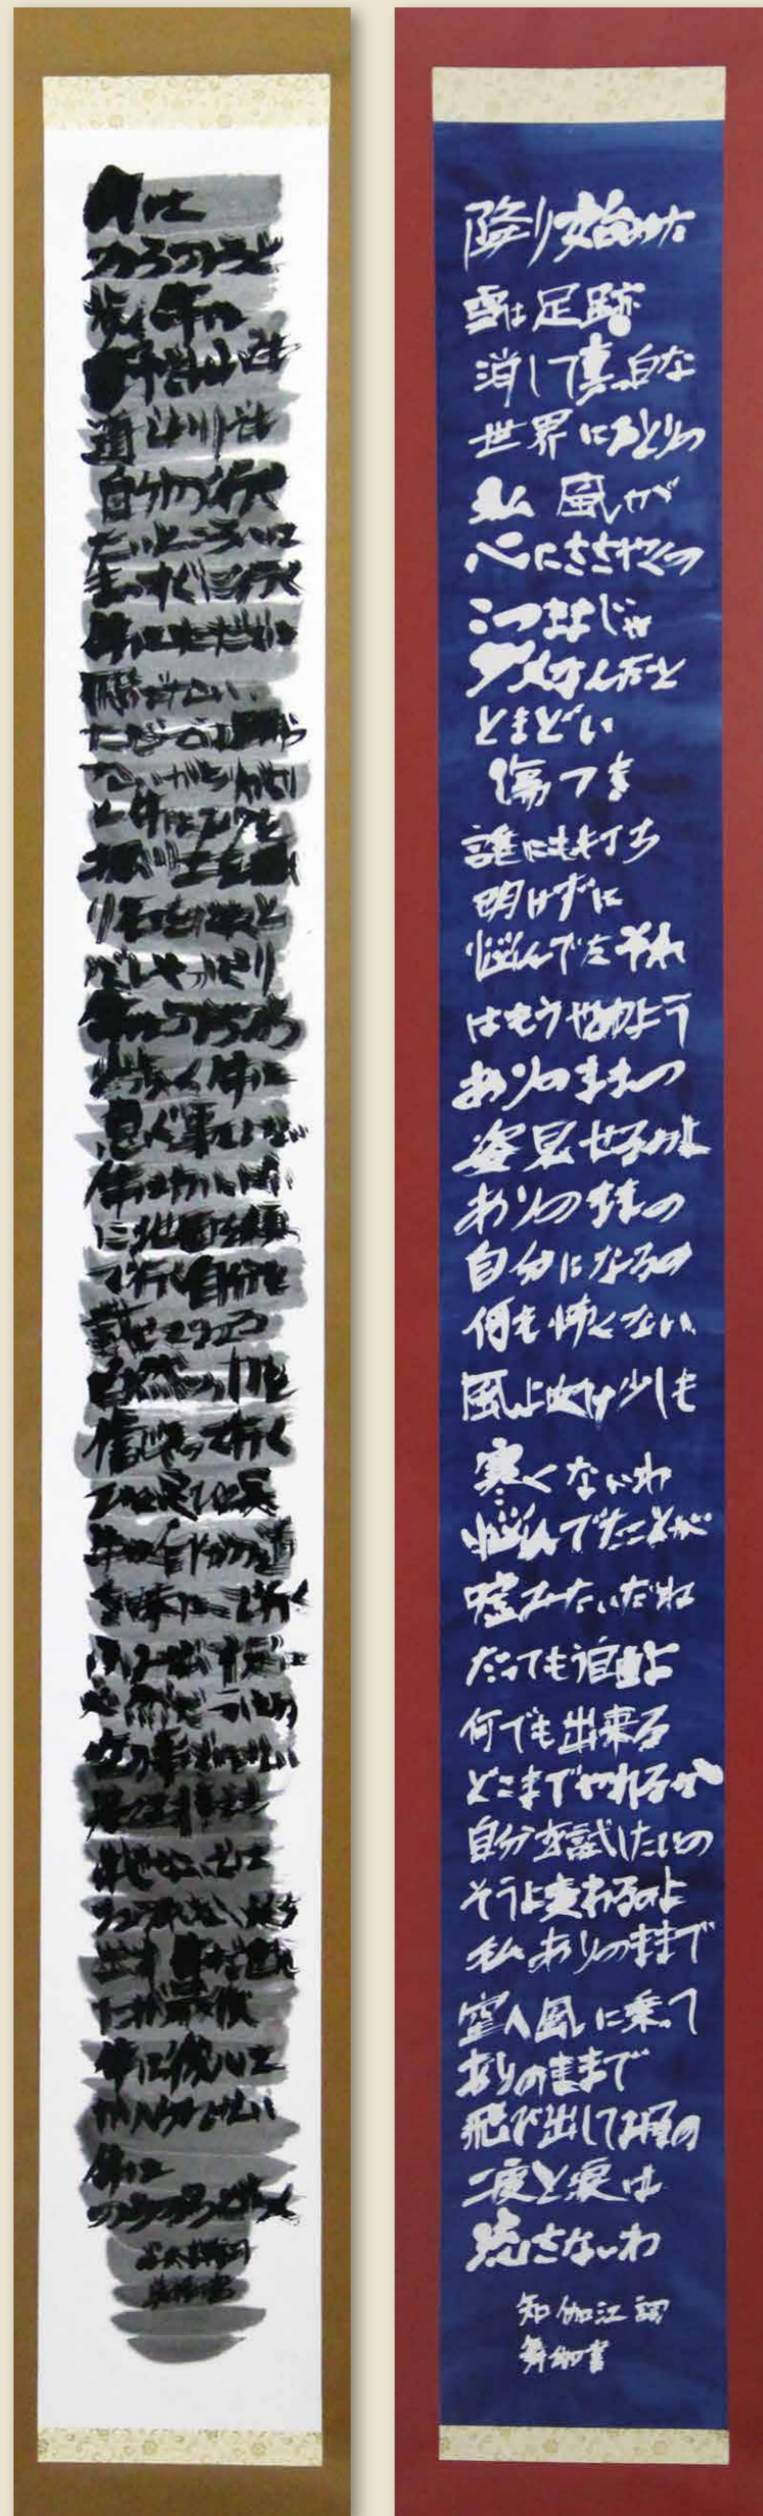 牛は
のろのろと
歩く牛は
野でも山でも
道でも川でも
自分の行き
たいところへは
まっすぐに行く
牛はただでは
飛ばない
ただでは躍ら
ないがちりがちり
と牛は砂を
掘り土を掘
り石をはねと
ばしやっぱり
牛はのろのろ
と歩く牛は
急ぐ事をしない
牛は力一ぱい
に地面を頼っ
て行く自分を
載せている
自然の力を
信じきって行く
ひと足ひと足
牛は自分の道を
味わって行く
ふみ出す足は
必然だうわの
空の事でない
是でも非でも
出さないでは
たまらない足を
出す牛だ出し
たが最後
牛は後へは
かへらない
牛は
のろのろと歩く
降り始めた
雪は足跡
消して真っ白な
世界にひとりの
私 風が
心にささやくの
このままじゃ
ダメなんだと
とまどい
傷つき
誰にも打ち
明けずに
悩んでたそれ
はもうやめよう
ありのままの
姿見せるのよ
ありのままの
自分になるの
何も怖くない
風よ吹け少しも
寒くないわ
悩んでたことが
嘘みたいだね
だってもう自由よ
何でも出来る
どこまでやれるか
自分を試したいの
そうよ変わるのよ
私ありのままで
空へ風に乗って
ありのままで
飛び出してみるの
二度と涙は
流さないわ
知伽江 詞
舞
書